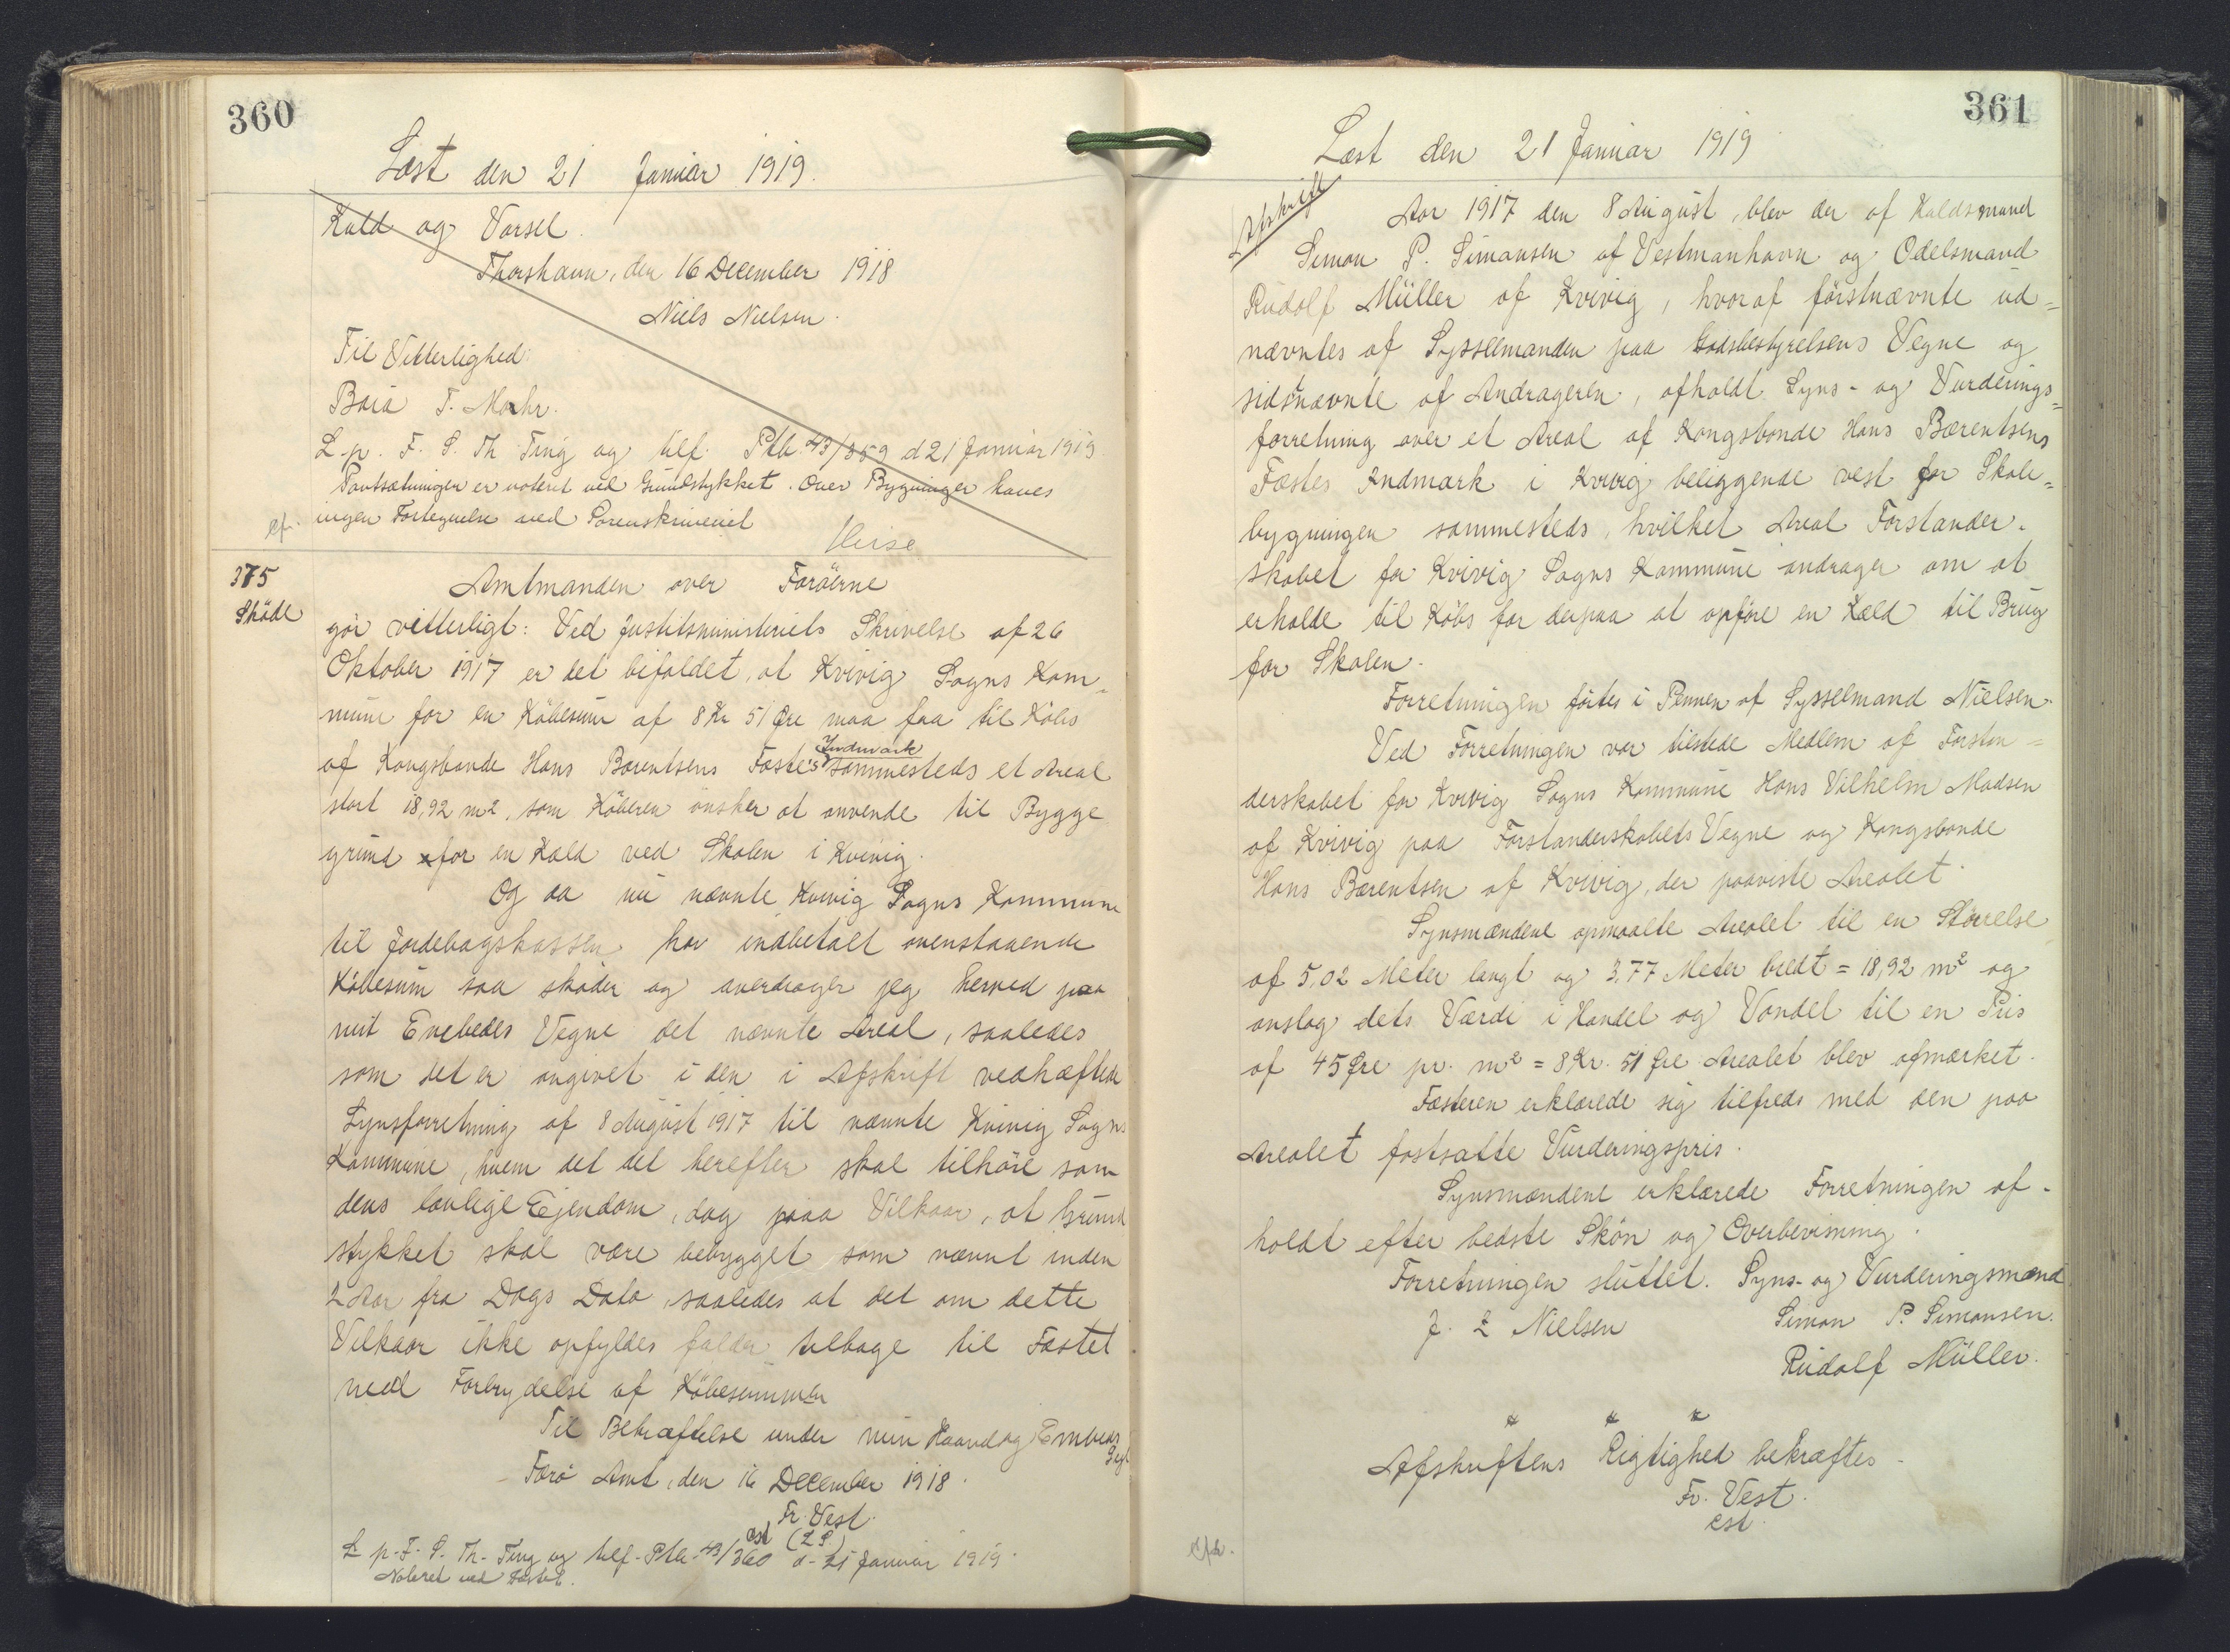 360
Læst den 21 Januar 1919.
Kald og Varsel.
Thorshavn, den 16 December 1918
Niels Nielsen.
Til Vitterlighed:
Baia T. Mohr.
L. p. F. S. Th Ting og tilf. Ptb. 43/359 d 21 Januar 1919
Pantsætningen er noteret ved Grundstykket. Over Bygninger haves
cfr. ingen Fortegnelse ved Sorenskriveriet
375
Skøde
Amtmanden over Færøerne
gör vitterligt: Ved Justitsministeriets Skrivelse af 26
Oktober 1917 er det bifaldet, at Kvivig Sogns Kom-
mune for en Köbesum af 8 Kr 51 Øre maa faa til Köbs
af Kongsbonde Hans Bærentsens Fæste's Indmark sammesteds et Areal
stort 18,92 m2, som Köberen önsker at anvende til Bygge
grund for en Kæld ved Skolen i Kvivig.
Og da nu nævnte Kvivig Sogns Kommune
til Jordebogskassen har indbetalt ovenstaaende
Köbesum saa sköder og overdrager jeg herved paa
mit Embedes Vegne det nævnte Areal, saaledes
som det er angivet i den i Afskrift vedhæftede
Synsforretning af 8 August 1917 til nævnte Kvivig Sogns
Kommune, hvem det det herefter skal tilhöre som
dens lovlige Ejendom, dog paa Vilkaar, at Grund
stykket skal være bebygget som nævnt inden
2 Aar fra Dags Dato, saaledes at det om dette
Vilkaar ikke opfyldes falder tilbage til Fæstet
med Forbrydelse af Köbesummen
Til Bekræftelse under min Haand og Embeds
Segl
Færö Amt, den 16 December 1918.
Fr. Vest.
cst (L S)
L p. F. S. Th. Ting og tilf. Ptb. 43/360 d. 21 Januar 1919.
Noteret ved Fæstet.
361
Læst den 21 Januar 1919
Afskrift
Aar 1917 den 8 August, blev der af Kaldsmand
Simon P. Simonsen af Vestmanhavn og Odelsmand
Rudolf Müller af Kvivig, hvoraf förstnævnte ud-
nævntes af Sysselmanden paa Godsbestyrelsens Vegne og
sidstnævnte af Andrageren, afholdt Syns- og Vurderings-
forretning over et Areal af Kongsbonde Hans Bærentsens
Fæstes Indmark i Kvivig beliggende vest for Skole-
bygningen sammesteds, hvilket Areal Forstander-
skabet for Kvivig Sogns Kommune andrager om at
erholde til Köbs for derpaa at opføre en Kæld til Brug
for Skolen.
Forretningen førtes i Pennen af Sysselmand Nielsen.
Ved Forretningen var tilstede Medlem af Forstan-
derskabet for Kvivig Sogns Kommune Hans Vilhelm Madsen
af Kvivig paa Forstanderskabets Vegne og Kongsbonde
Hans Bærentsen af Kvivig, der paaviste Arealet.
Synsmændene opmaalte Arealet til en Störrelse
af 5,02 Meter langt og 3,77 Meter bredt = 18,92 m2 og
anslog dets Værdi i Handel og Vandel til en Pris
af 45 Øre pr. m2 = 8 Kr. 51 Øre Arealet blev afmærket.
Fæsteren erklærede sig tilfreds med den paa
Arealet fastsatte Vurderingspris.
Synsmændene erklærede Forretningen af-
holdt efter bedste Skön og Overbevisning.
Forretningen sluttet. Syns- og Vurderingsmænd
J. L Nielsen Simon P. Simonsen.
Rudolf Müller.
Afskriftens Rigtighed bekræftes.
Fr. Vest.
cst.